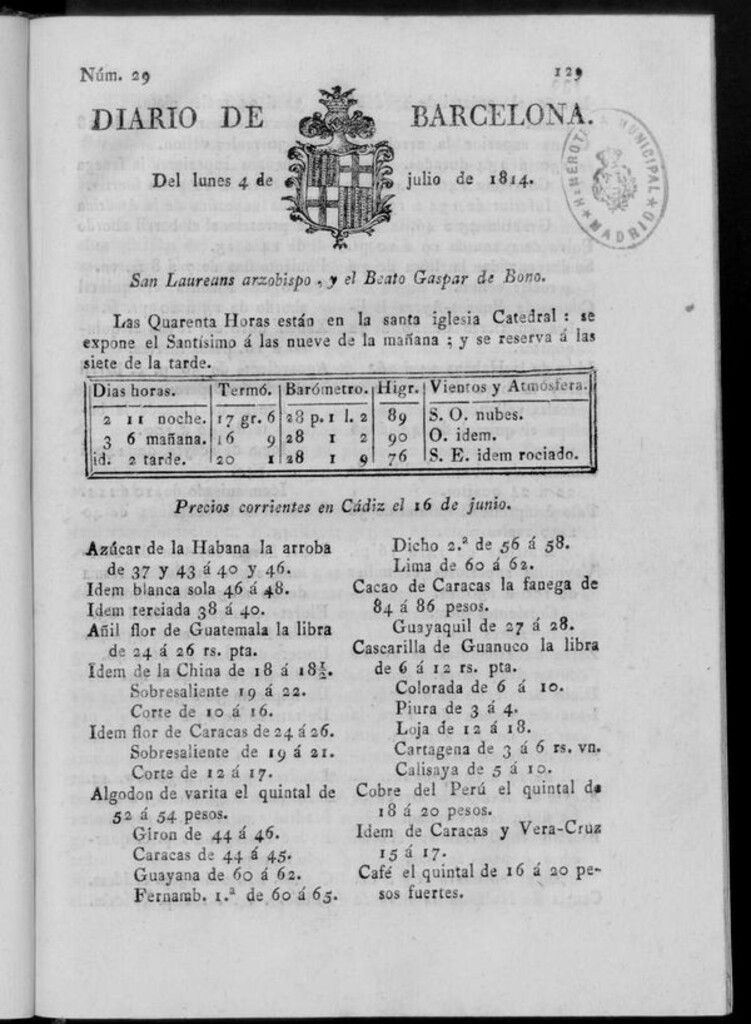 Núm. 29
129
DIARIO DE BARCELONA.
Del lunes 4 de julio de 1814.
HEMEROTECA MUNICIPAL
★ MADRID ★
San Laureans arzobispo, y el Beato Gaspar de Bono.
Las Quarenta Horas están en la santa iglesia Catedral : se
expone el Santísimo á las nueve de la mañana ; y se reserva á las
siete de la tarde.
Dias horas. Termó. Barómetro. Higr. Vientos y Atmósfera.
2 11 noche. 17 gr. 6 28 p. 1 l. 2 89 S. O. nubes.
3 6 mañana. 16 9 28 1 2 90 O. idem.
id. 2 tarde. 20 1 28 1 9 76 S. E. idem rociado.
Precios corrientes en Cádiz el 16 de junio.
Azúcar de la Habana la arroba
de 37 y 43 á 40 y 46.
Idem blanca sola 46 á 48.
Idem terciada 38 á 40.
Añil flor de Guatemala la libra
de 24 á 26 rs. pta.
Idem de la China de 18 á 18½.
Sobresaliente 19 á 22.
Corte de 10 á 16.
Idem flor de Caracas de 24 á 26.
Sobresaliente de 19 á 21.
Corte de 12 á 17.
Algodon de varita el quintal de
52 á 54 pesos.
Giron de 44 á 46.
Caracas de 44 á 45.
Guayana de 60 á 62.
Fernamb. 1.ª de 60 á 65.
Dicho 2.ª de 56 á 58.
Lima de 60 á 62.
Cacao de Caracas la fanega de
84 á 86 pesos.
Guayaquil de 27 á 28.
Cascarilla de Guanuco la libra
de 6 á 12 rs. pta.
Colorada de 6 á 10.
Piura de 3 á 4.
Loja de 12 á 18.
Cartagena de 3 á 6 rs. vn.
Calisaya de 5 á 10.
Cobre del Perú el quintal de
18 á 20 pesos.
Idem de Caracas y Vera-Cruz
15 á 17.
Café el quintal de 16 á 20 pe-
sos fuertes.